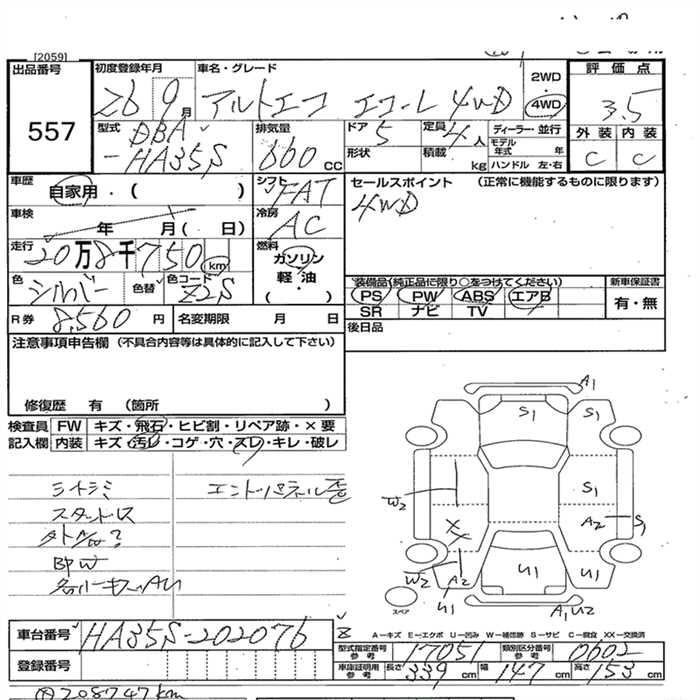 [2059]
出品番号
557
初度登録年月
26 9月
車名・グレード
アルトエコ エコ-L 4WD
2WD
4WD
評価点
3.5
外装 内装
C C
型式
DBA
-HA35S
排気量
660 cc
ドア
5
形状
定員
4人
積載 kg
ディーラー・並行
モデル年式 年
ハンドル 左・右
車歴
自家用・( )
シフト
FAT
セールスポイント (正常に機能するものに限ります)
4WD
車検
年 月( 日)
冷房
AC
走行
20万8千750 km
燃料
ガソリン
軽・油
( )
色
シルバー
色替
色コード
Z2S
装備品(純正品に限り○をつけてください)
PS PW ABS エアB
SR ナビ TV
新車保証書
有・無
R券 8,560 円
名変期限 月 日
後日品
注意事項申告欄(不具合内容等は具体的に記入して下さい)
修復歴 有 (箇所 )
検査員 FW キズ・飛石・ヒビ割・リペア跡・×要
記入欄 内装 キズ・汚レ・コゲ・穴・スレ・キレ・破レ
シートシミ
エンドパネル歪
スタットレス
A1
S1
S1
W2
A2
S1
W2
A2
U1
U1
U1
A1 U2
スペア
車台番号 HA35S-202076
登録番号
A−キズ E−エクボ U−凹み W−補修跡 S−サビ C−腐食 XX−交換済
型式指定番号 参考 17051
類別区分番号 参考 0602
車庫証明用 参考 長さ 339cm 幅 147cm 高さ 153cm
208747km